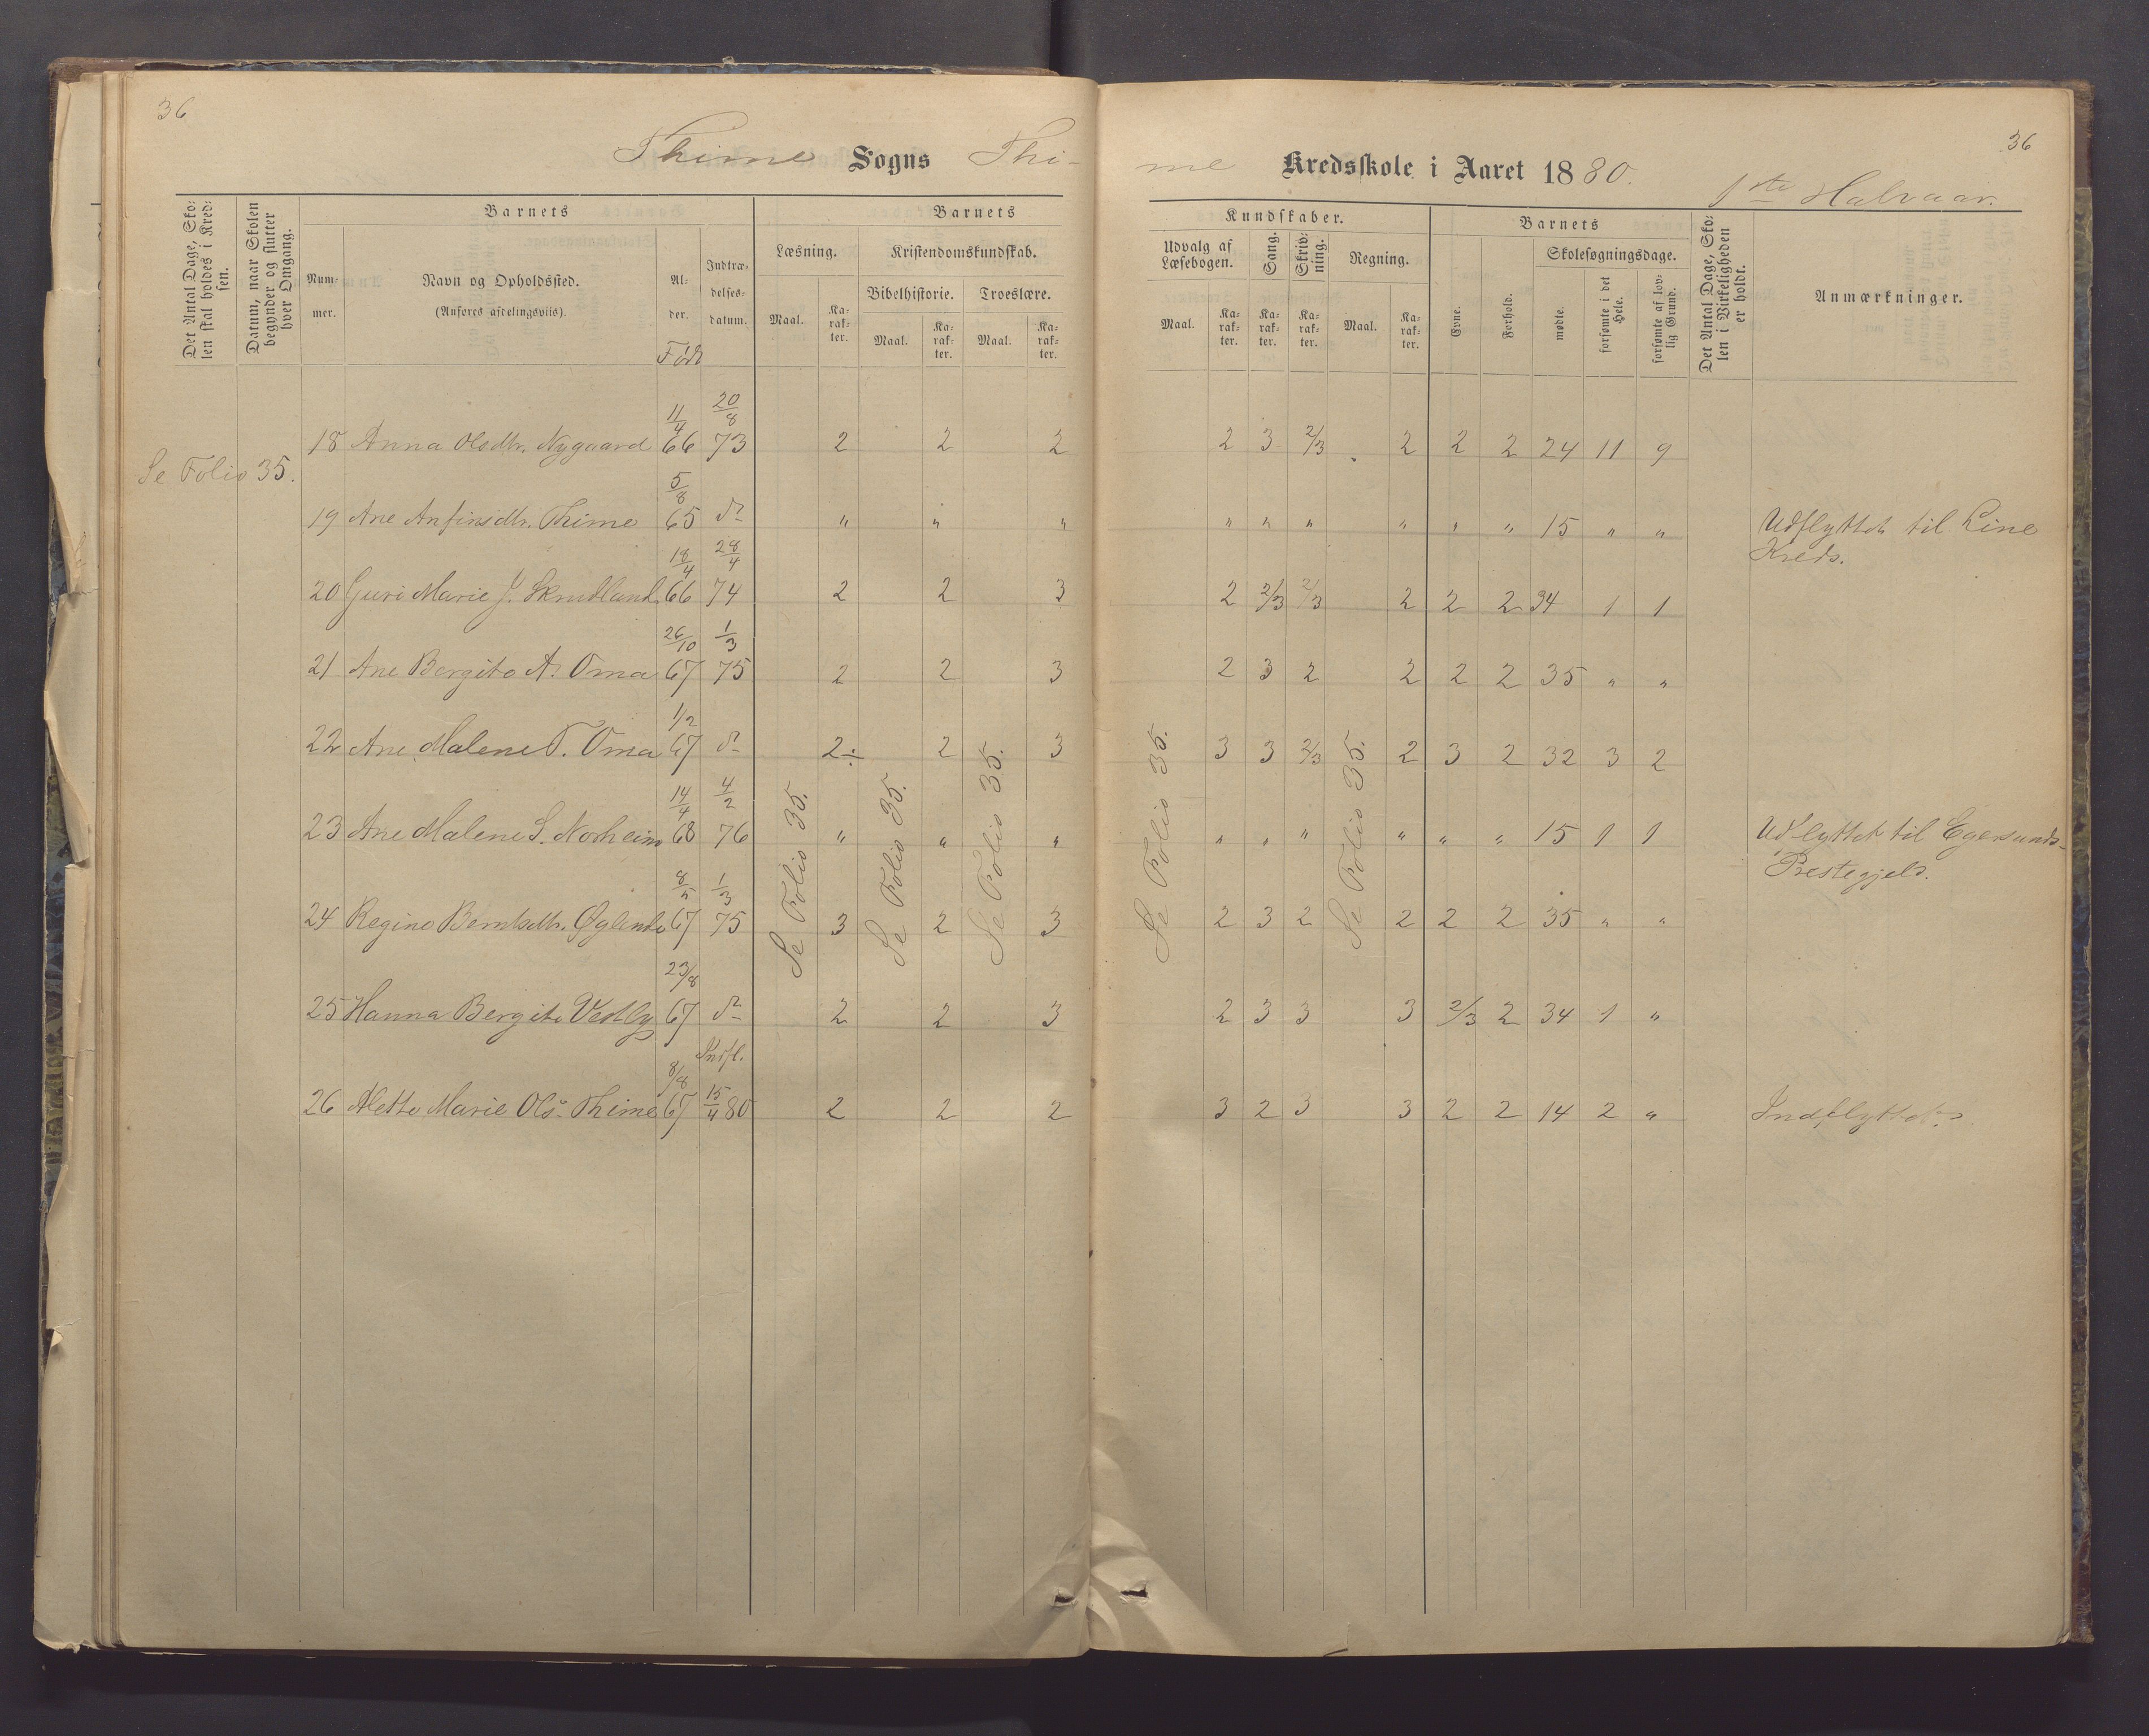 36
36
Thime Sogns Thi-
me Kredsskole i Aaret 1880.
1ste Halvaar.
Det Antal Dage, Sko-
len skal holdes i Kred-
sen.
Datum, naar Skolen
begynder og slutter
hver Omgang.
Barnets
Num-
mer.
Navn og Opholdssted.
(Anføres afdelingsviis).
Al-
der.
Født
Indtræ-
delses-
datum.
Barnets
Læsning.
Maal.
Ka-
rak-
ter.
Kristendomskundskab.
Bibelhistorie.
Troeslære.
Maal.
Ka-
rak-
ter.
Maal.
Ka-
rak-
ter.
Kundskaber.
Udvalg af
Læsebogen.
Maal.
Ka-
rak-
ter.
Sang.
Ka-
rak-
ter.
Skriv-
ning.
Ka-
rak-
ter.
Regning.
Maal.
Ka-
rak-
ter.
Barnets
Evne.
Forhold.
Skolesøgningsdage.
mødte.
forsømte i det
Hele.
forsømte af lov-
lig Grund.
Det Antal Dage, Sko-
len i Virkeligheden
er holdt.
Anmærkninger.
Se Folio 35.
18 Anna Olsdtr. Nygaard 11/4 66 20/8 73 2 2 2 2 3 2/3 2 2 2 24 11 9
19 Ane Anfinsdtr. Thime 5/8 65 do " " " " " " " " " 15 " " Udflyttet til Line
Kreds.
20 Guri Marie J. Skrudland 18/4 66 28/4 74 2 2 3 2 2/3 2/3 2 2 2 34 1 1
21 Ane Bergite A. Oma 26/10 67 1/3 75 2 2 3 2 3 2 2 2 2 35 " "
22 Ane Malene T. Oma 1/2 67 do 2÷ 2 3 3 3 2/3 2 3 2 32 3 2
23 Ane Malene S. Norheim 14/4 68 4/2 76 " " " " " " " " " 15 1 1 Udflyttet til Egersunds-
Prestegjeld.
24 Regine Berntsdtr. Øglende 8/5 67 1/3 75 3 2 3 2 3 2 2 2 2 35 " "
25 Hanna Bergite Vestly 23/8 67 do 2 2 3 2 3 3 3 2/3 2 34 1 "
26 Alette Marie Ols. Thime 8/8 67 Indfl. 15/4 80 2 2 2 3 2 3 3 2 2 14 2 " Indflyttet.
Se Folio 35.
Se Folio 35.
Se Folio 35.
Se Folio 35.
Se Folio 35.